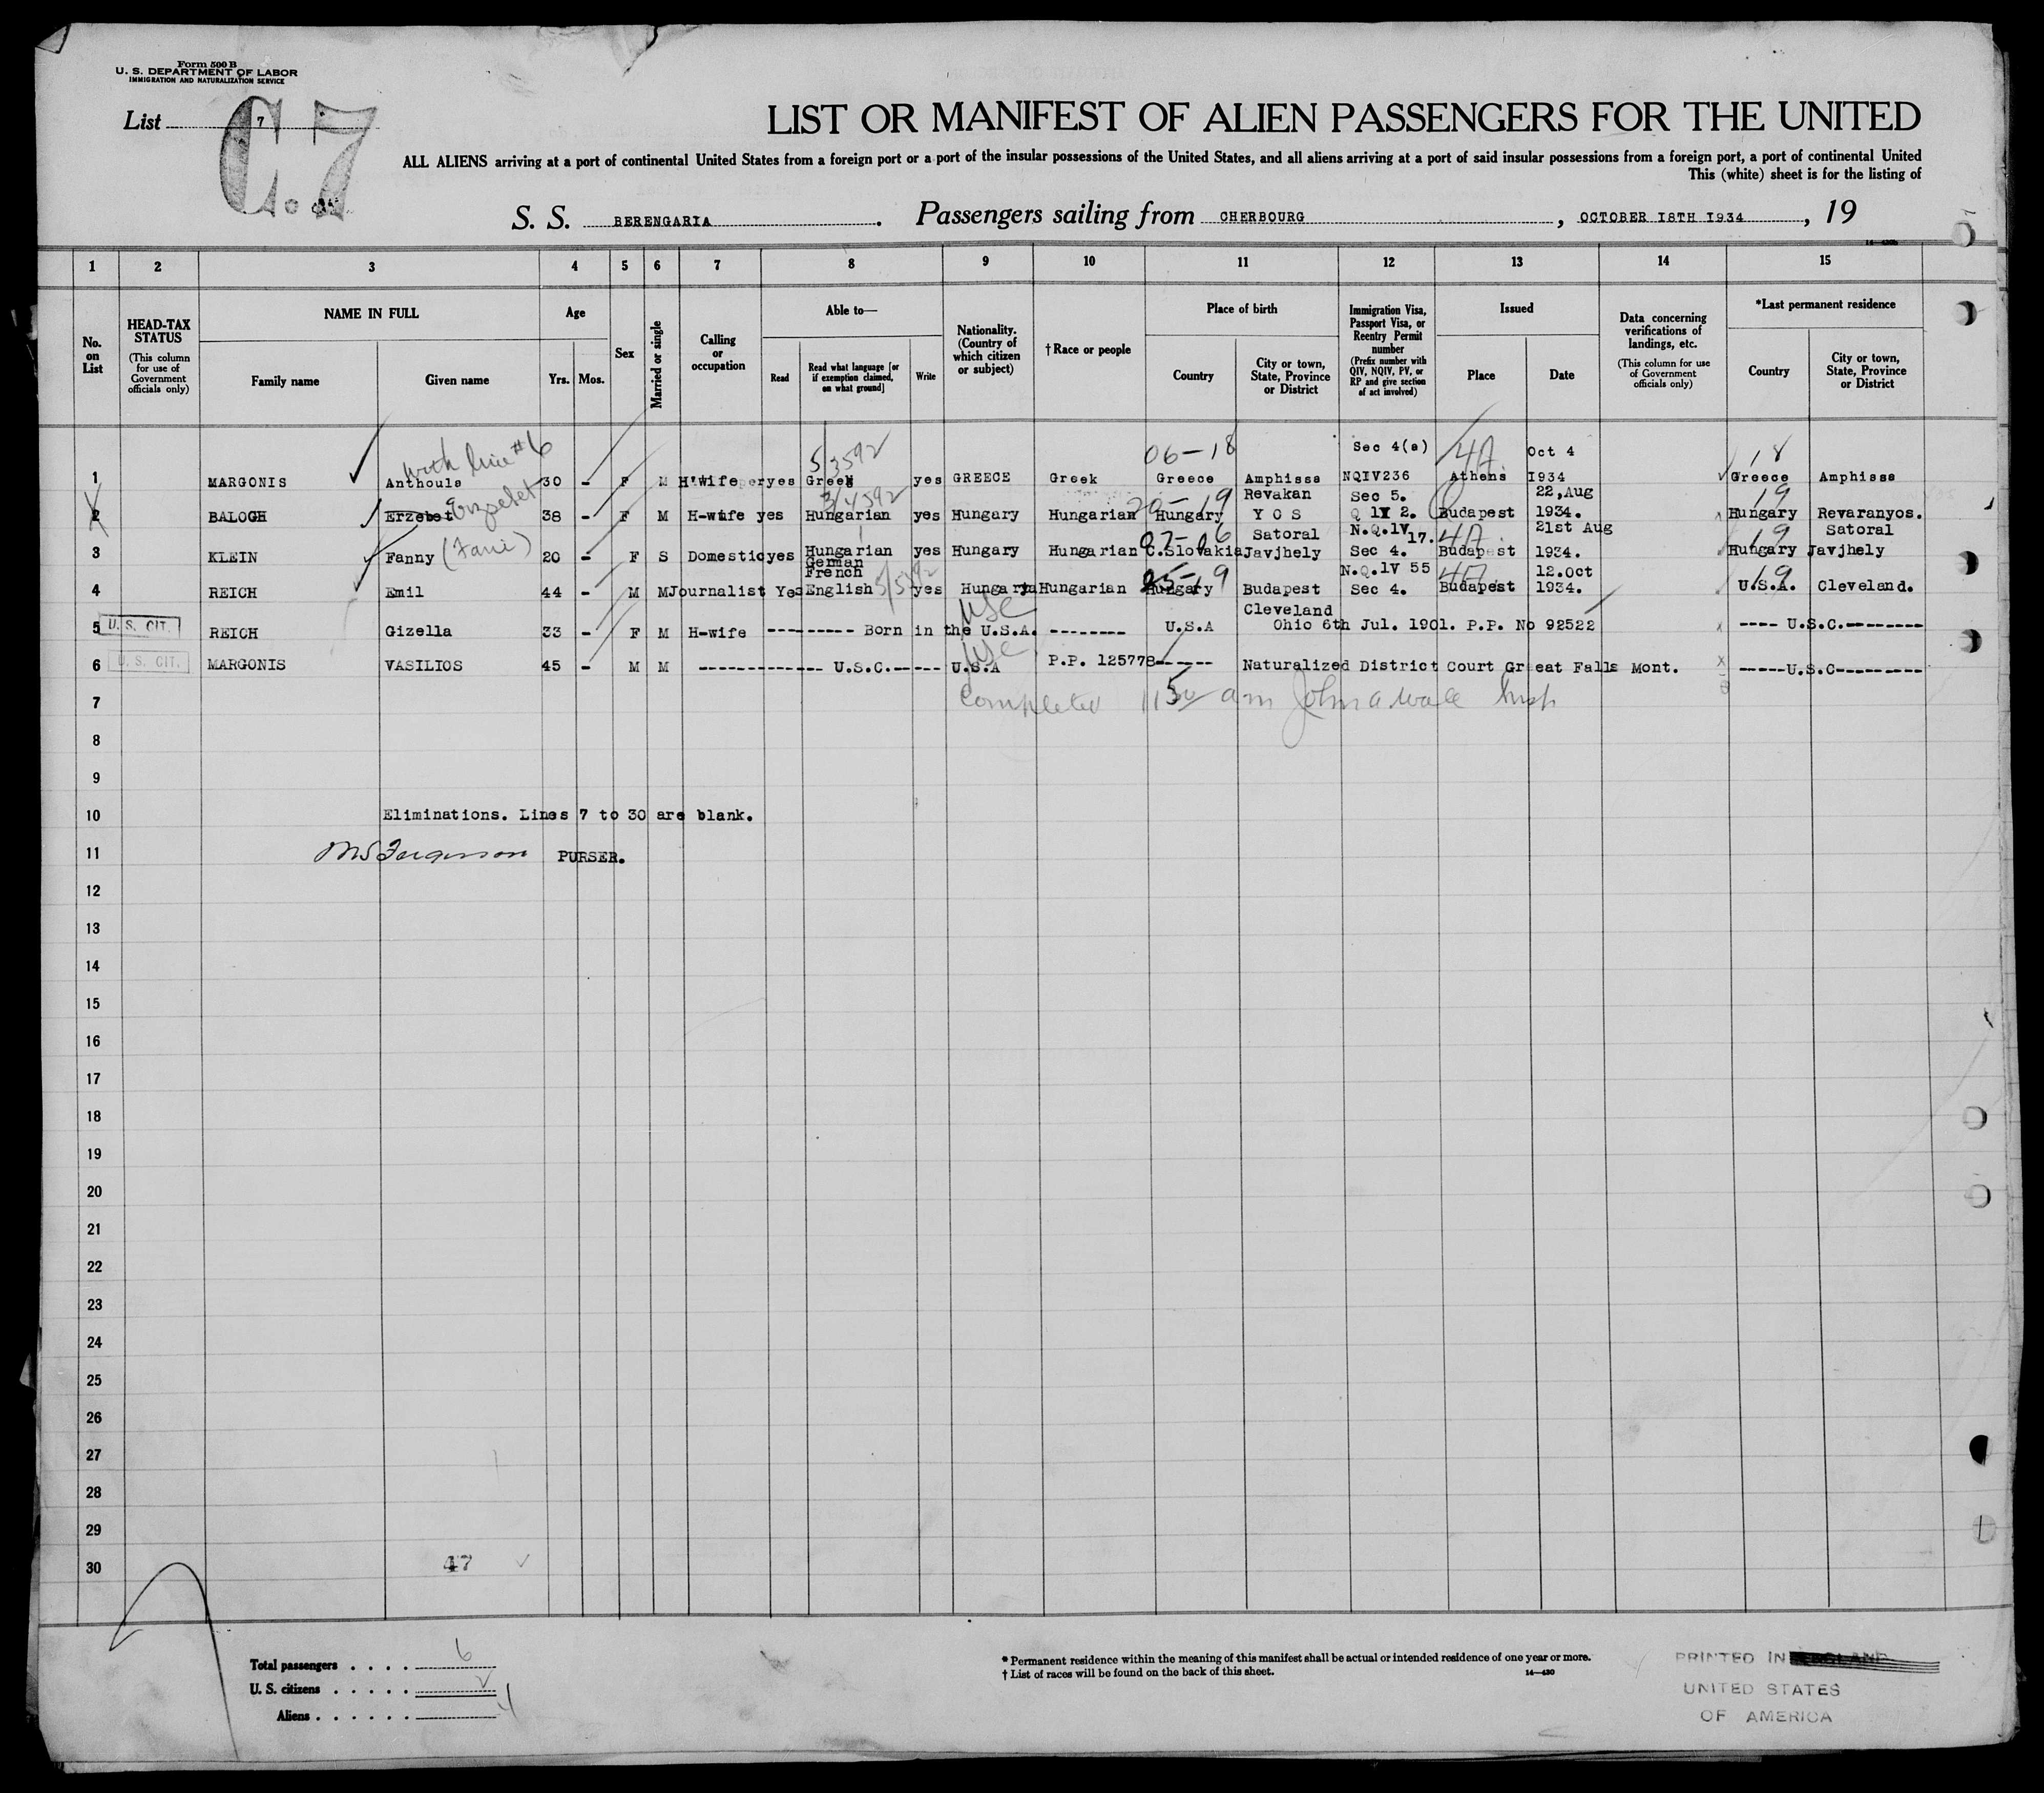 Form 500 B
U. S. DEPARTMENT OF LABOR
IMMIGRATION AND NATURALIZATION SERVICE
List 7
C.7
LIST OR MANIFEST OF ALIEN PASSENGERS FOR THE UNITED
ALL ALIENS arriving at a port of continental United States from a foreign port or a port of the insular possessions of the United States, and all aliens arriving at a port of said insular possessions from a foreign port, a port of continental United
This (white) sheet is for the listing of
S. S. BERENGARIA. Passengers sailing from CHERBOURG, OCTOBER I8TH I934, 19
14-430b
1 2 3 4 5 6 7 8 9 10 11 12 13 14 15
No. on List
HEAD-TAX STATUS
(This column for use of Government officials only)
NAME IN FULL
Family name
Given name
Age
Yrs. Mos.
Sex
Married or single
Calling or occupation
Able to—
Read
Read what language [or if exemption claimed, on what ground]
Write
Nationality. (Country of which citizen or subject)
†Race or people
Place of birth
Country
City or town, State, Province or District
Immigration Visa, Passport Visa, or Reentry Permit number
(Prefix number with QIV, NQIV, PV, or RP and give section of act involved)
Issued
Place
Date
Data concerning verifications of landings, etc.
(This column for use of Government officials only)
*Last permanent residence
Country
City or town, State, Province or District
with line #6 5/3592 06-18 Sec 4(a) 4A Oct 4 18
1 MARGONIS Anthoula 30 - F M H'wife yes Greek yes GREECE Greek Greece Amphissa NQIV236 Athens I934 Greece Amphissa
Erzsebet 3/4592 20-19 Revakan Sec 5. 22,Aug 19
2 BALOGH Erzebet 38 - F M H-wife yes Hungarian yes Hungary Hungarian Hungary Y O S Q 1V 2. Budapest 1934. Hungary Revaranyos.
07-06 Satoral N.Q.1V 17. 4A 21st Aug 19 Satoral
3 KLEIN Fanny (Fani) 20 - F S Domestic yes Hungarian yes Hungary Hungarian C.Slovakia Javjhely Sec 4. Budapest 1934. Hungary Javjhely
German
French 5/5592 N.Q.1V 55 4A 12.Oct 19
4 REICH Emil 44 - M M Journalist Yes English yes Hungary Hungarian Hungary Budapest Sec 4. Budapest 1934. U.S.A. Cleveland.
USC Cleveland
5 U. S. CIT. REICH Gizella 33 - F M H-wife --------- Born in the U.S.A. -------- U.S.A Ohio 6th Jul. 1901. P.P. No 92522 ---- U.S.C.--------
USC
6 U. S. CIT. MARGONIS VASILIOS 45 - M M ------------- U.S.C.----- U.S.A P.P. 125778------ Naturalized District Court Great Falls Mont. -----U.S.C---------
7 Completed 1150 am John a Wall Insp
8
9
10 Eliminations. Lines 7 to 30 are blank.
11 PURSER.
12
13
14
15
16
17
18
19
20
21
22
23
24
25
26
27
28
29
30 47
Total passengers . . . . 6
U. S. citizens . . . . . 2
Aliens . . . . . . 4
* Permanent residence within the meaning of this manifest shall be actual or intended residence of one year or more.
† List of races will be found on the back of this sheet. 14-430
PRINTED IN ENGLAND
UNITED STATES
OF AMERICA